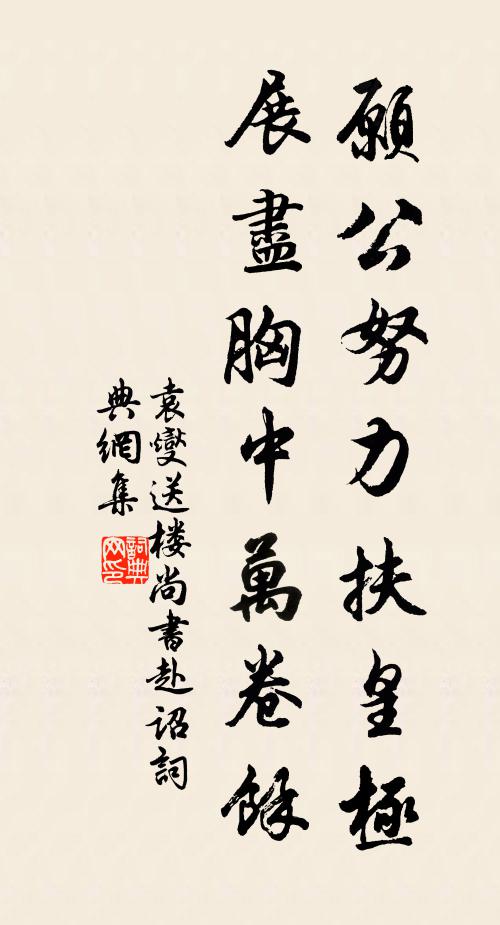 願公努力扶皇極
展盡胸中萬卷餘
袁燮送楼尚書赴诏詞
典網集
詞典网印